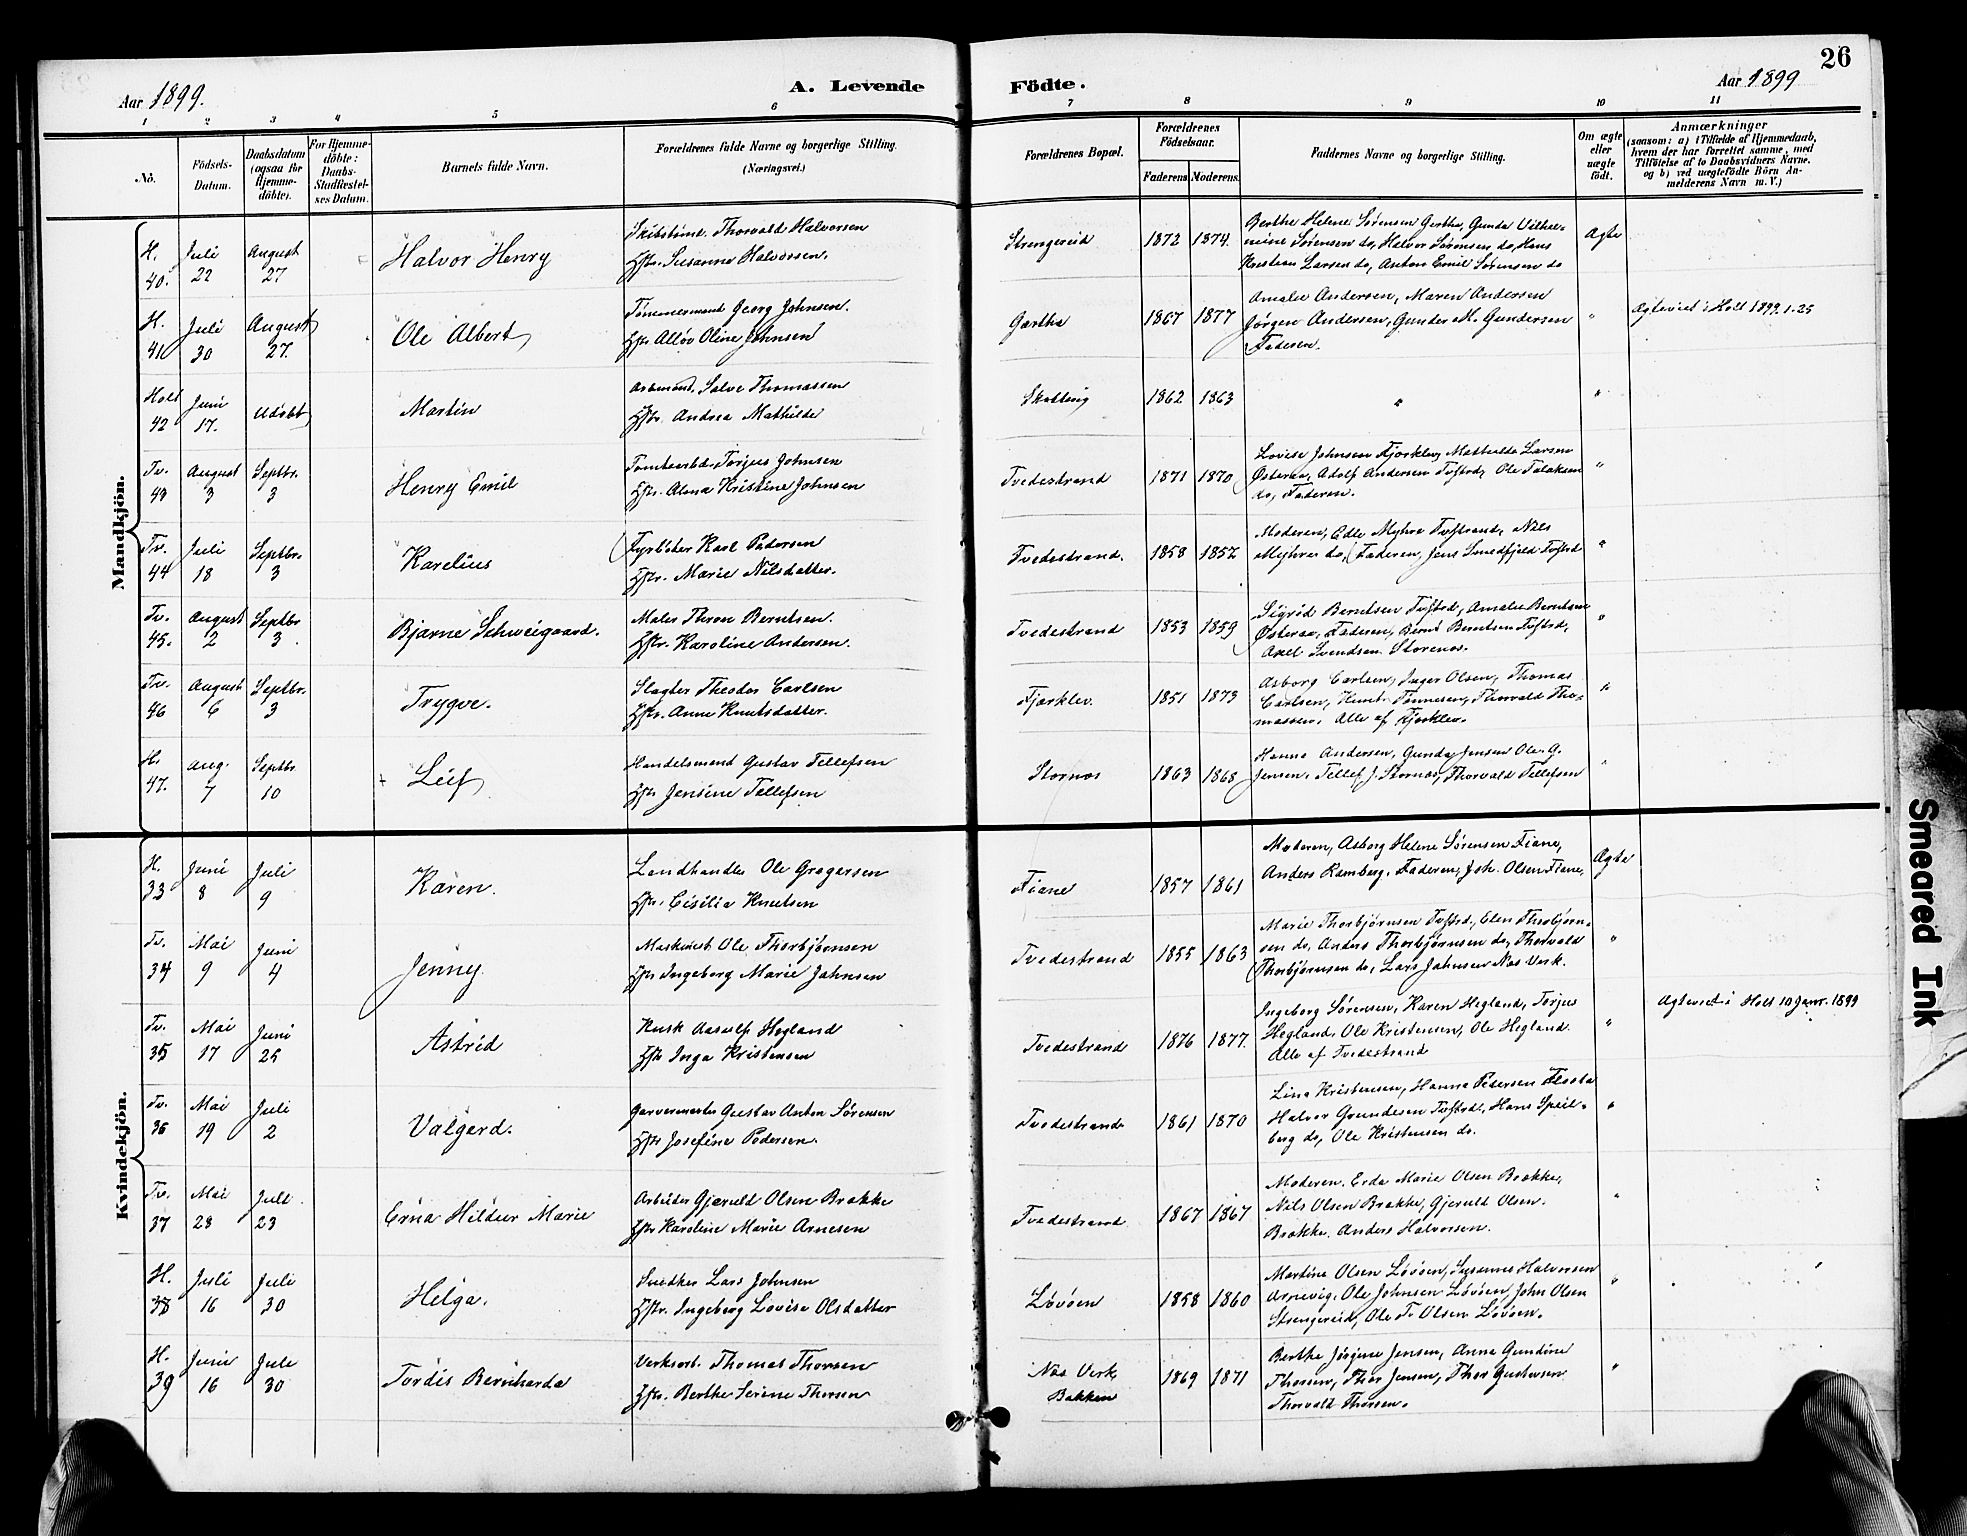 26
Aar 1899.
A. Levende Födte.
Aar 1899
1 2 3 4 5 6 7 8 9 10 11
No.
Födsels-Datum.
Daabsdatum (ogsaa for Hjemme-döbte).
For Hjemme-döbte: Daabs-Stadfæstel-ses Datum.
Barnets fulde Navn.
Forældrenes fulde Navne og borgerlige Stilling.
(Næringsvei.)
Forældrenes Bopæl.
Forældrenes Födselsaar.
Faderens. Moderens.
Faddernes Navne og borgerlige Stilling.
Om ægte eller uægte födt.
Anmærkninger
(saasom: a) i Tilfælde af Hjemmedaab,
hvem der har forrettet samme, med
Tilföielse af to Daabsvidners Navne.
og b) ved uægtefödte Börn An-
melderens Navn m. V.)
Mandkjön.
H. 40. Juli 22 August 27. Halvor Henry
Thorvald Halvorsen
Hstr. Susanne Halvorsen.
Strengereid 1872 1874.
Berthe Helene Sørensen Gjerthe, Gunda Vilhel-
mine Sørensen do, Halvor Sørensen do, Hans
Kristian Larsen do, Anton Emil Sørensen do
Ægte
H. 41 Juli 30 August 27. Ole Albert
Tømmermand Georg Johnsen.
Hstr Oline Johnsen
Gjerthe 1867 1877
Amalie Andersen, Maren Andersen
Jörgen Andersen, Gunder M. Gundersen
Faderen.
"
Ægteviet i Holt 1899.1.25
Holt 42 Juni 17. Udöbt Martin
Salve Thomassen
Hstr. Andrea Mathilde
1862 1863
"
"
Tv. 43 August 3 Septbr. 3 Henry Emil
Tomtearbd. Torjus Johnsen
Hstr. Alma Kristine Johnsen
Tvedestrand 1871 1870
Lovise Johnsen Fjærklev, Mathilde Larsen
Østeraa, Adolf Andersen Tvstrd, Ole
do, Faderen.
"
Tv. 44 Juli 18 Septbr. 3 Karelius
Fyrböter Karl Pedersen
Hstr. Marie Nilsdatter.
Tvedestrand. 1858 1852
Moderen, Edle Myhre Tvstrand, Nils
Myhre do, Faderen, Jens Smedfjeld Tvstrd
"
Tv. 45. August 2 Septbr 3. Bjarne Schweigaard.
Maler Thron Berntsen.
Hstr. Karoline Andersen.
Tvedestrand 1853 1859
Sigrid Berntsen Tvstrd, Amalie Berntsen
Østeraa, Faderen, Bernt Berntsen Tvstrd,
Axel Svendsen Storenæs.
"
Tv. 46 August 6 Septbr. 3 Trygve.
Slagter Theodor Carlsen
Hstr. Anne Knutsdatter.
Fjærklev. 1851 1873
Asborg Carlsen, Inger Olsen, Thomas
Carlsen, Knut Tønnesen, Thorvald Tho-
massen. Alle af Fjærklev.
"
H. 47. Aug. 7 Septbr 10 Leif
Handelsmand Gustav Tellefsen
Hstr Jensine Tellefsen
Stornæs 1863 1868
Hanna Andersen, Gunda Jensen Ole G.
Jensen, Tellef J. Stornæs, Thorvald Tellefsen
"
Kvindekjön.
H. 33 Juni 8 Juli 9 Karen.
Landhandler Ole Gregersen
Hstr. Cisilia Knutsen
Fiane 1857 1861
Moderen, Asborg Helene Sørensen Fiane,
Anders Ramberg, Faderen, Joh. Olsen Fiane,
Ægte
Tv. 34 Mai 9 Juni 4 Jenny.
Maskinist Ole Thorbjörnsen
Hstr Ingeborg Marie Johnsen
Tvedestrand 1855 1863
Marie Thorbjørnsen Tvstrd, Elen Thorbjørn-
sen do, Anders Thorbjørnsen do, Thorvald
Thorbjørnsen do, Lars Johnsen Næs Verk.
"
Tv. 35 Mai 17 Juni 25 Astrid
Kusk Aasulf Hegland
Hstr Inga Kristensen
Tvedestrand 1876 1877.
Ingeborg Sørensen, Karen Hegland, Torjus
Hegland, Ole Kristensen, Ole Hegland.
Alle af Tvedestrand
"
Ægteviet i Holt 10 Janr. 1899
Tv. 36 Mai 19 Juli 2 Valgerd.
Garvermester Gustav Anton Sørensen
Hstr Josefine Pedersen.
Tvedestrand 1861 1870
Lina Kristensen, Hanna Petersen Flosta
Halvor Gundesen Tvstrd, Hans Speil-
berg do, Ole Kristensen do.
"
Tv. 37 Mai 28 Juli 23 Erna Hildur Marie
Arbeider Gjeruld Olsen Brække
Hstr Karoline Marie Arnesen
Tvedestrand 1867 1867
Moderen. Erda Marie Olsen Brække,
Nils Olsen Brække, Gjeruld Olsen.
Brække. Anders Halvorsen.
"
H. 38 Juli 16 Juli 30 Helga.
Snedker Lars Johnsen
Hstr. Ingeborg Lovise Olsdatter
Løvöen 1858 1860
Martine Olsen Løvöen, Halvorsen
Arnevig, Ole Johnsen Løvöen, John Olsen
Strengereid, Ole Tv Olsen Løvöen.
"
H. 39 Juni 16 Juli 30 Tordis Bernharda
Verksarb. Thomas Thorsen
Hstr. Berthe Serine Thorsen
Næs Verk, Bakken 1869 1871
Berthe Jørgine Jensen, Anna Gundine
Thorsen, Thor Jensen, Thor Gustavsen
Thorvald Thorsen.
"
Smeared Ink